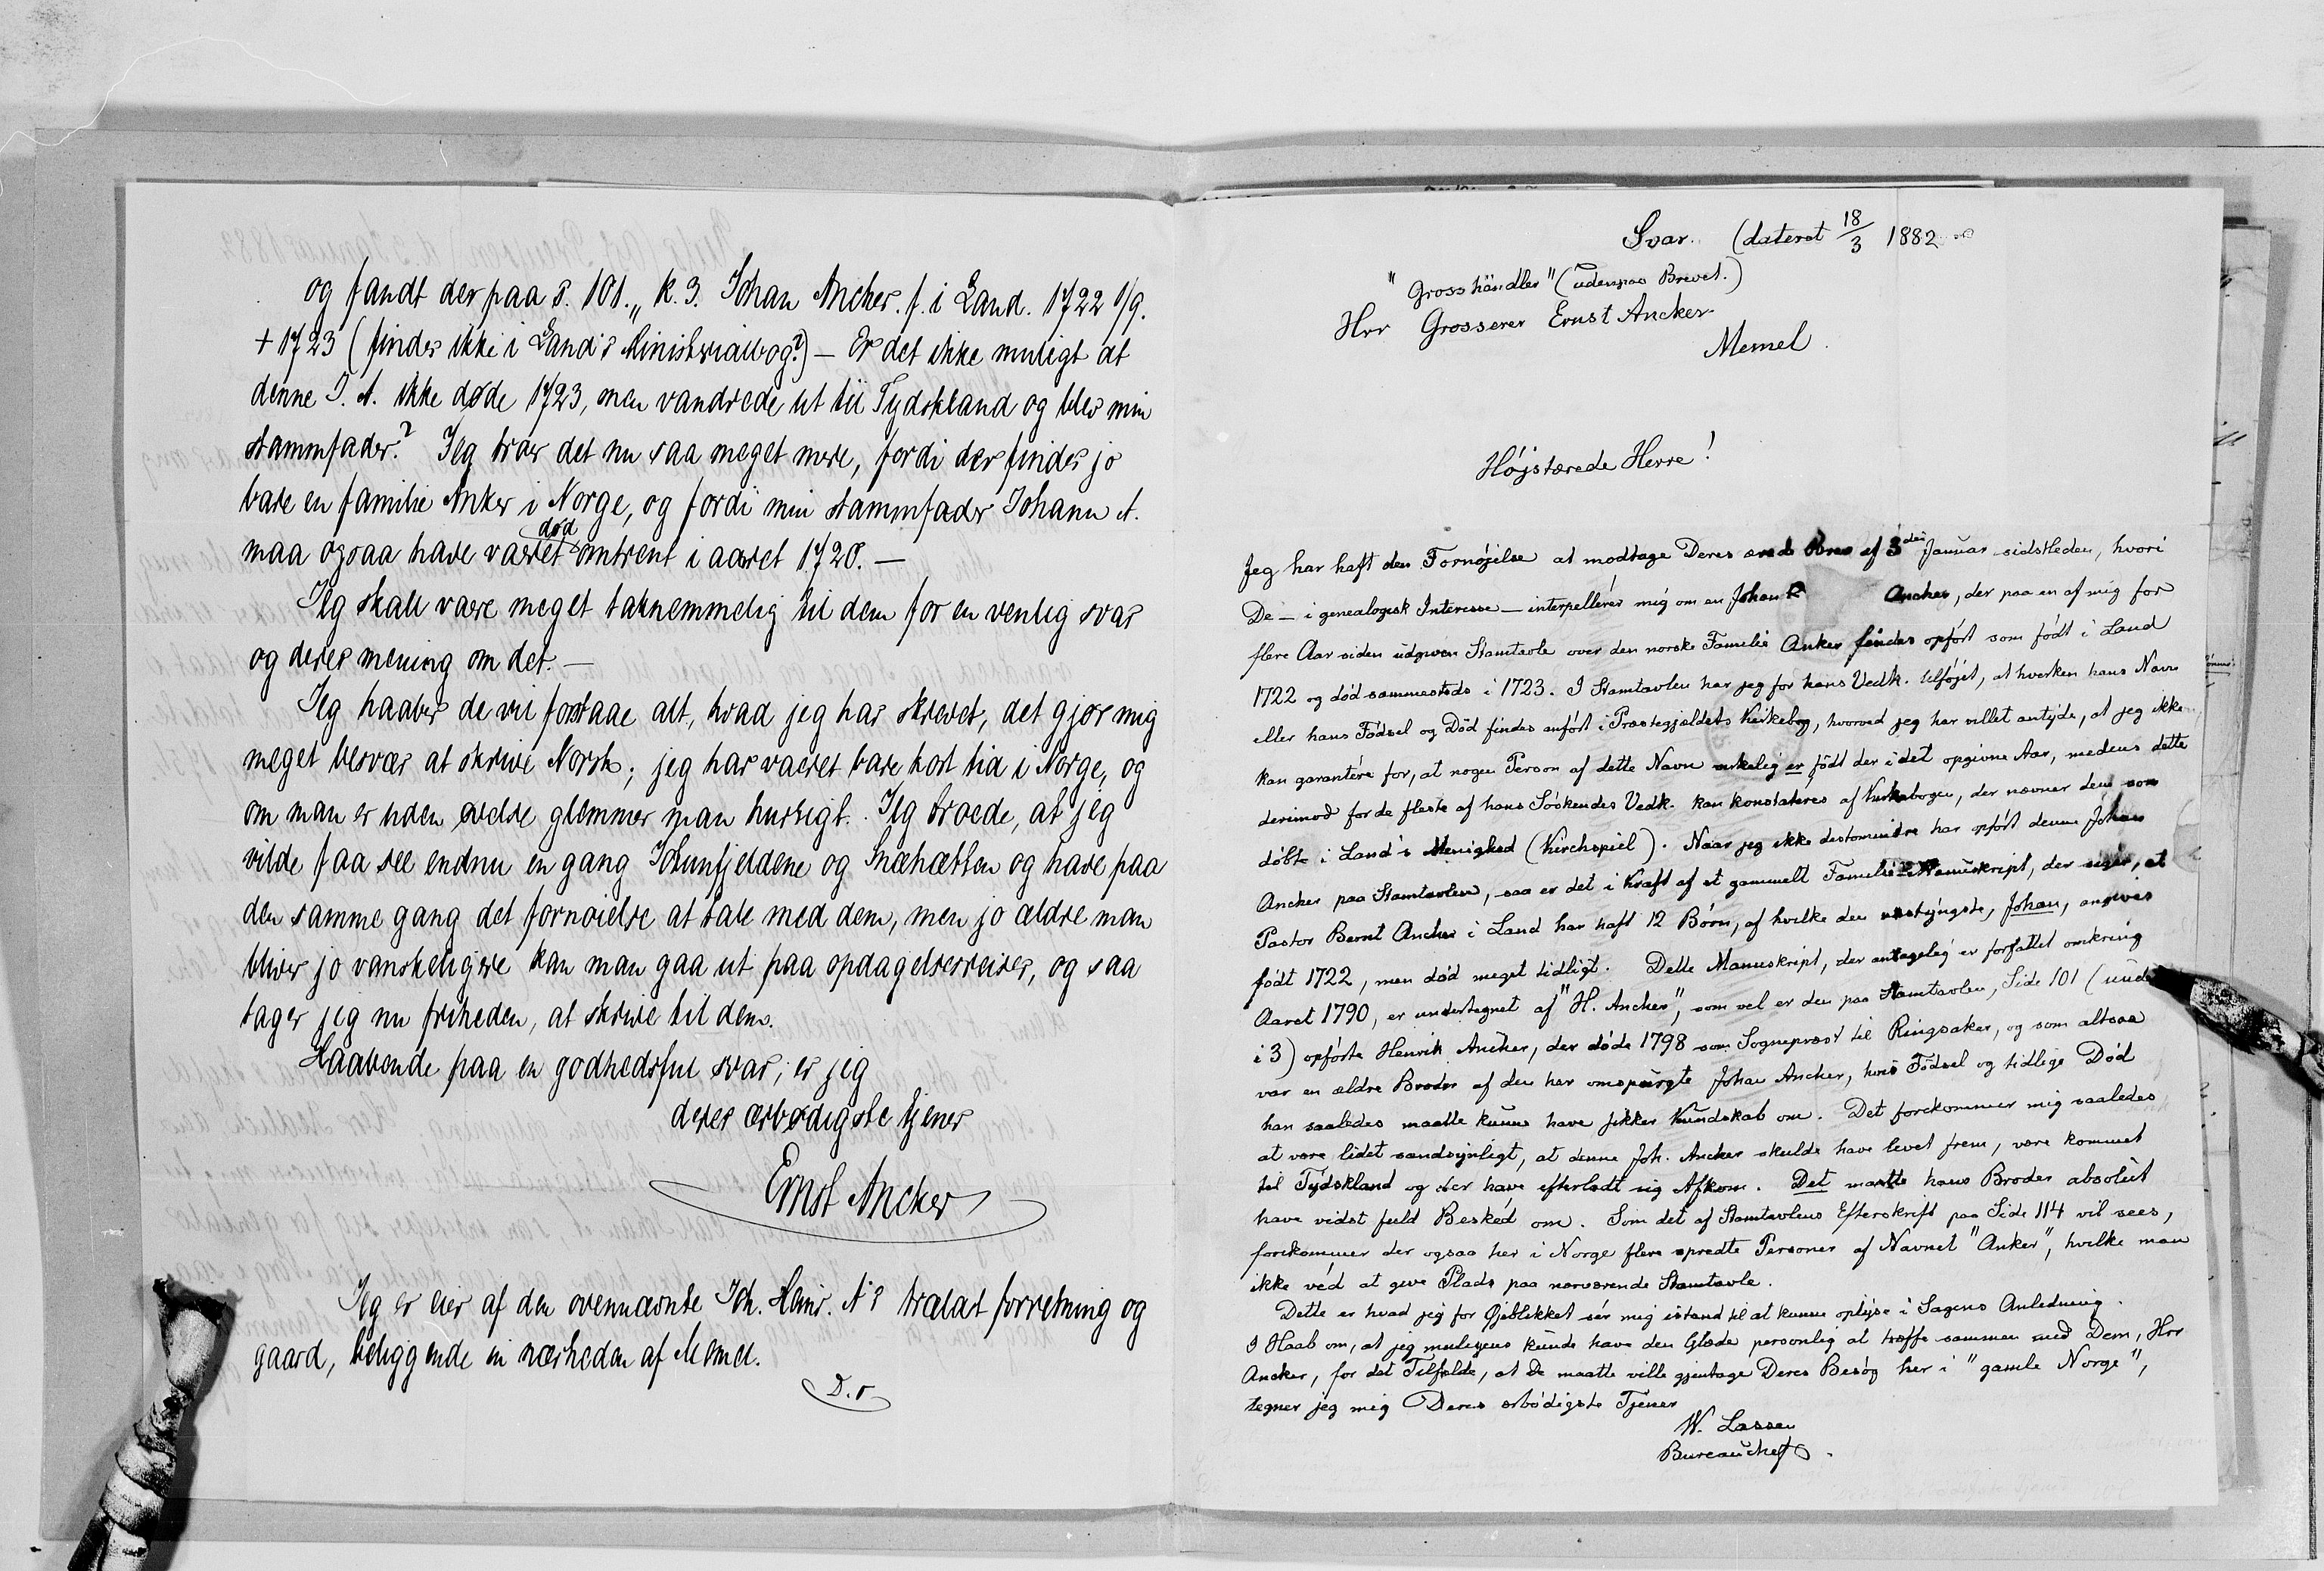 og fandt der paa s. 101. „ k. 3. Johan Ancher. f. i Land. 1722 1/9.
+ 1723 (findes ikke i Land's Ministerialbog?) — Er det ikke muligt at
denne J. A. ikke døde 1723, men vandrede ut til Tydskland og blev min
stammfader? Jeg troer det nu saa meget mere, fordi der findes jo
bare en familie Anker i Norge, og fordi min stammfader Johann A.
død
maa ogsaa have været omtrent i aaret 1720. —
Jeg skall være meget taknemmelig til dem for en venlig svar
og deres mening om det. —
Jeg haaber de vil forstaae alt, hvad jeg har skrevet, det gjør mig
meget besvær at skrive Norsk; jeg har været bare kort tid i Norge, og
om man er uden øvelse glemmer man hurtigt. Jeg troede, at jeg
vilde faa see endnu en gang Jotunfjeldene og Snæhætten og have paa
den samme gang det fornøielse at tale med dem, men jo ældre man
bliver jo vanskeligere kan man gaa ut paa opdagelsesreiser, og saa
tager jeg nu friheden, at skrive til dem.
Haabende paa en godhedsful svar, er jeg
deres ærbødigste tjener
Ernst Ancker
Jeg er eier af den ovennævnte Joh. Heinr. A's trælast forretning og
gaard, beliggende in nærheden af Memel.
D. O.
Svar. (dateret 18/3 1882
"Grosshändler" (udenpaa Brevet.)
Hrr Grosserer Ernst Ancker
Memel.
Höjstærede Herre!
Jeg har haft den Fornøjelse at modtage Deres ærede Brev af 3den Januar sidstleden, hvori
De — i genealogisk Interesse — interpellérer mig om en Johan Ancher, der paa en af mig for
flere Aar siden udgiven Stamtavle over den norske Familie Anker findes opført som födt i Land
1722 og död sammesteds i 1723. I Stamtavlen har jeg for hans Vedk. tilföjet, at hverken hans Navn
eller hans Födsel og Död findes anfört i Præstegjældets Kirkebog, hvorved jeg har villet antyde, at jeg ikke
kan garantére for, at nogen Person af dette Navn virkelig er födt der i det opgivne Aar, medens dette
derimod for de fleste af hans Söskendes Vedk. kan konstateres af Kirkebogen, der nævner dem som
döbte i Land's Menighed (Kirchspiel). Naar jeg ikke destomindre har opfört denne Johan
Ancher paa Stamtavlen, saa er det i Kraft af et gammelt Familie-Manuskript, der siger, at
Pastor Bernt Ancher i Land har haft 12 Börn, af hvilke den næstyngste, Johan, angives
födt 1722, men död meget tidligt. Dette Manuskript, der antagelig er forfattet omkring
Aaret 1790, er undertegnet af "H. Ancher", som vel er den paa Stamtavlen, Side 101 (under
i 3) opförte Henrik Ancher, der döde 1798 som Sognepræst til Ringsaker, og som altsaa
var en ældre Broder af den her omspurgte Johan Ancher, hvis Födsel og tidlige Död
han saaledes maatte kunne have sikker Kundskab om. Det forekommer mig saaledes
at være lidet sandsynligt, at denne Joh. Ancher skulde have levet frem, være kommet
til Tydskland og der have efterladt sig Afkom. Det maatte hans Broder absolut
have vidst fuld Besked om. Som det af Stamtavlens Efterskrift paa Side 114 vil sees,
forekommer der ogsaa her i Norge flere spredte Personer af Navnet "Anker", hvilke man
ikke véd at give Plads paa nærværende Stamtavle.
Dette er hvad jeg for Øjeblikket sér mig istand til at kunne oplyse i Sagens Anledning.
I Haab om, at jeg muligens kunde have den Glæde personlig at træffe sammen med Dem, Hrr
Ancker, for det Tilfælde, at De maatte ville gjentage Deres Besög her i "gamle Norge",
tegner jeg mig Deres ærbödigste Tjener
W. Lassen
Bureauchef.